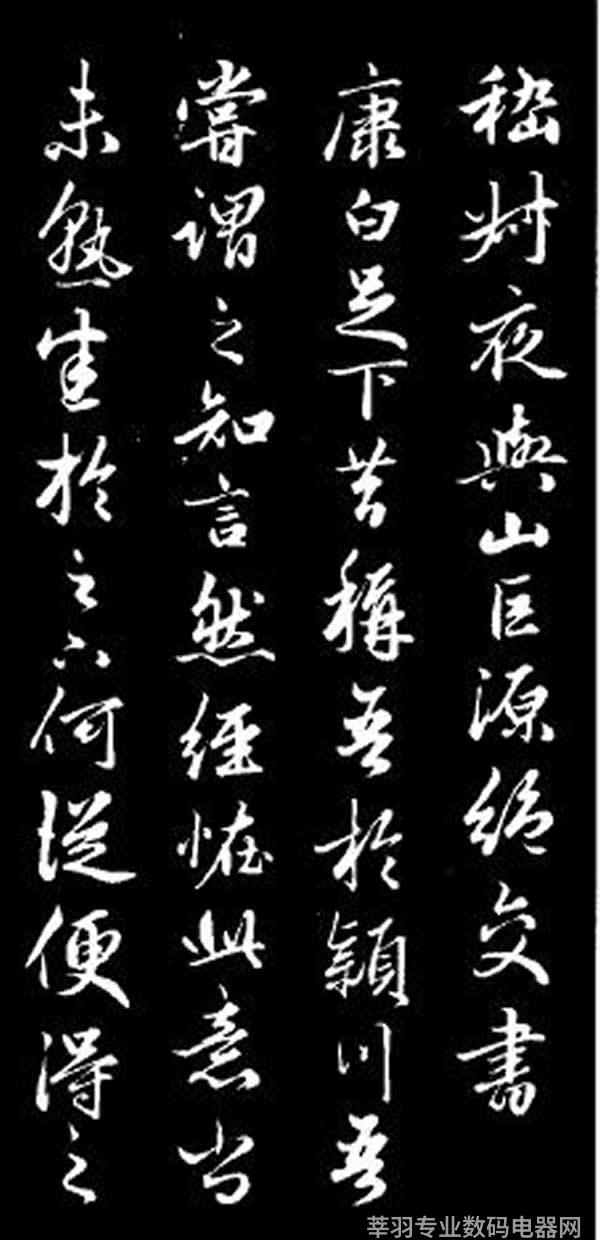 嵇叔夜與山巨源絕交書
康白足下昔稱吾於潁川吾
嘗謂之知言然經怪此意尚
未熟悉於足下何從便得之
莘羽专业数码电器网